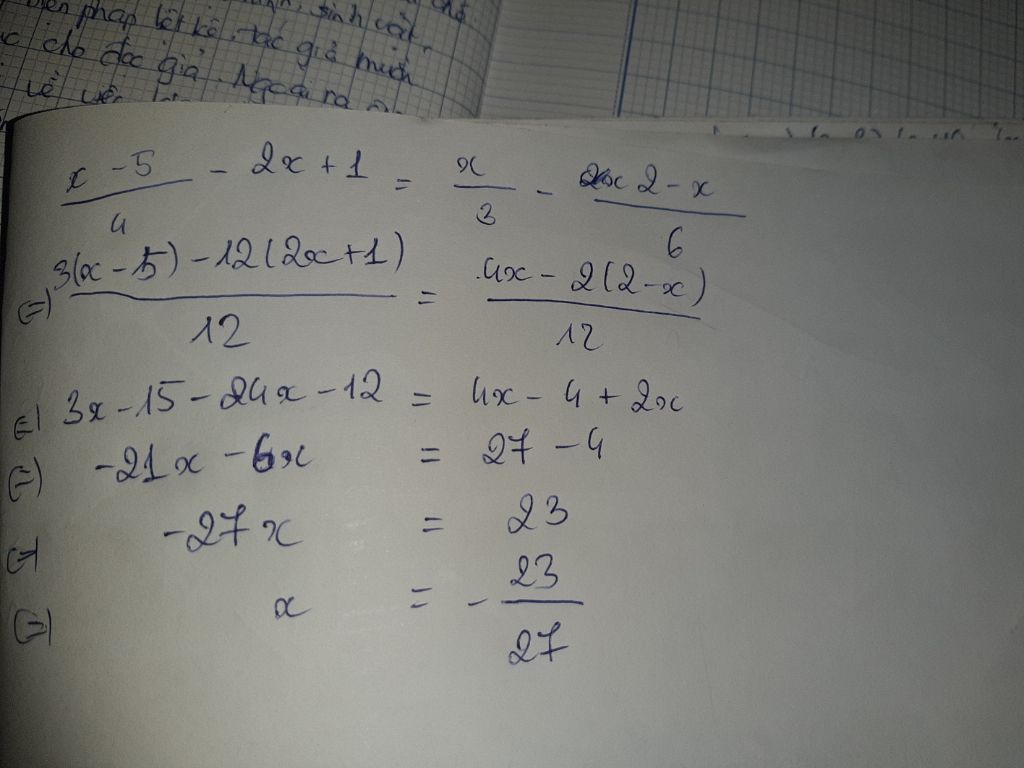 pháp liệt kê, tác giả muốn
cho đọc giả. Ngoài ra
về
x - 5 / 4 - 2x + 1 = x / 3 - 2 - x / 6
(=) 3(x - 5) - 12(2x + 1) / 12 = 4x - 2(2 - x) / 12
(=) 3x - 15 - 24x - 12 = 4x - 4 + 2x
(=) -21x - 6x = 27 - 4
(=) -27x = 23
(=) x = - 23 / 27